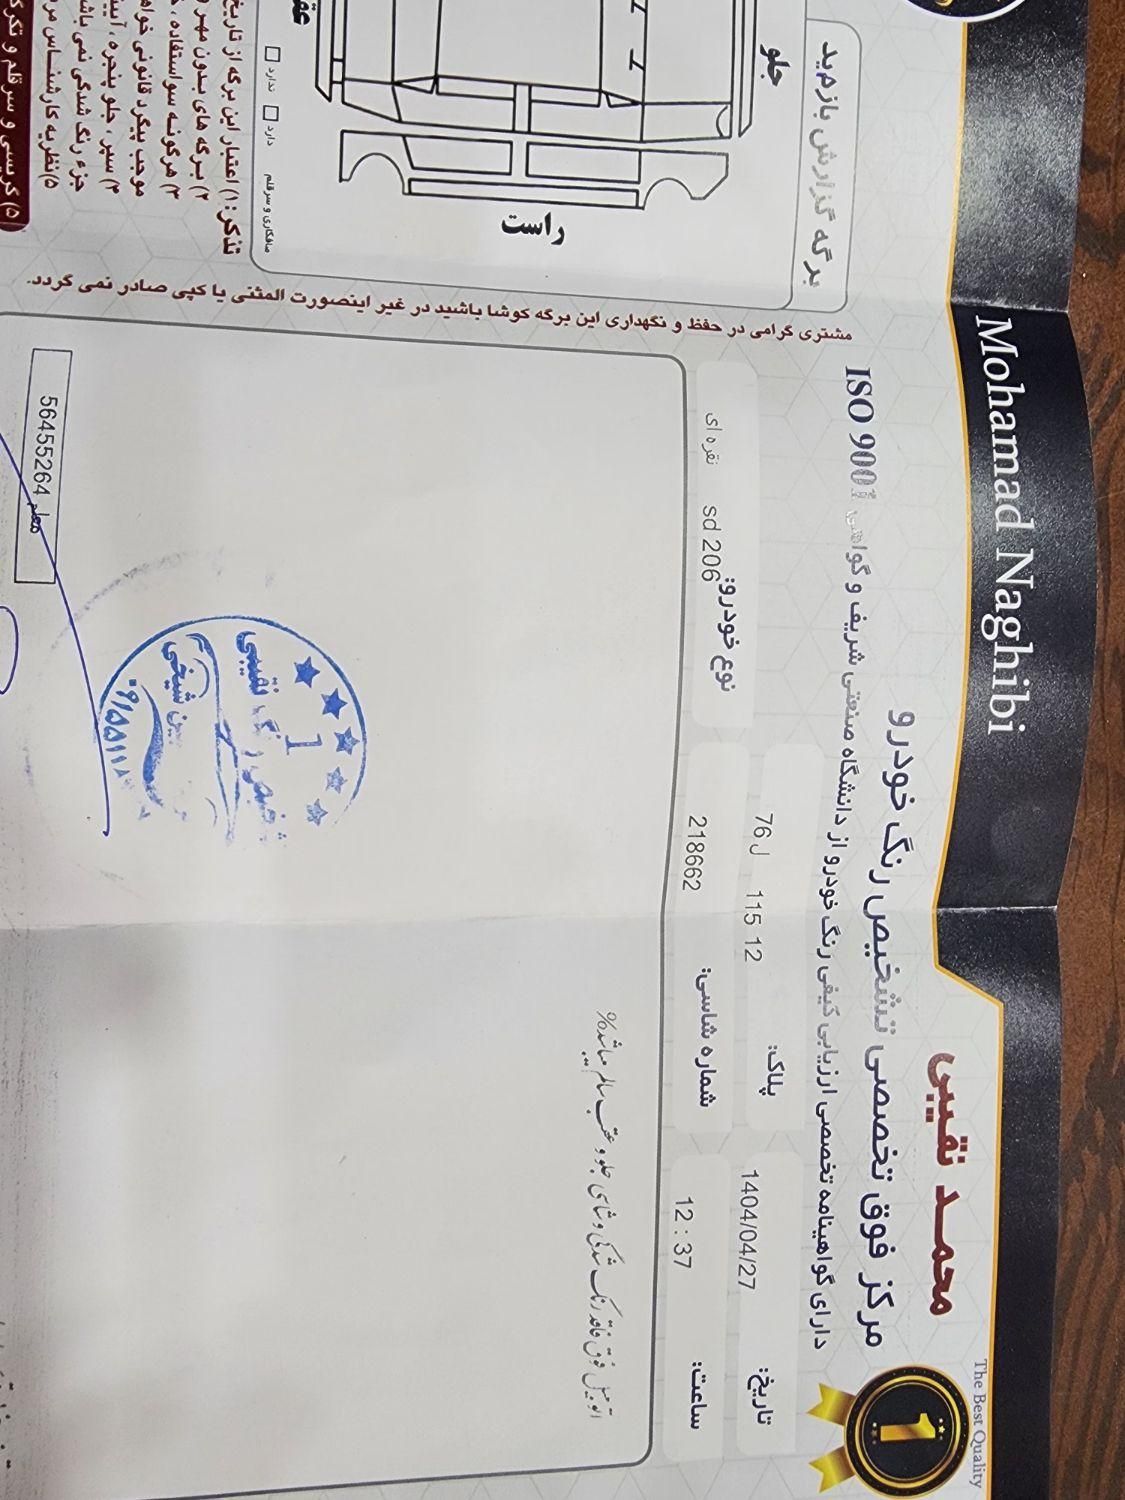 Mohamad Naghibi
The Best Quality
1
محمد نقیبی
مرکز فوق تخصصی تشخیص رنگ خودرو
دارای گواهینامه تخصصی ارزیابی کیفی رنگ خودرو از دانشگاه صنعتی شریف و گواهی ISO 9001
تاریخ: 1404/04/27
پلاک: 12 115 ل 76
ساعت: 12 : 37
شماره شاسی: 218662
نوع خودرو: 206 sd نقره ای
اتومبیل فوق فاقد رنگ شدگی و شاسی جلو و عقب سالم میباشد%
1
تشخیص رنگ نقیبی
شیخی
معلم 56455264
مشتری گرامی در حفظ و نگهداری این برگه کوشا باشید در غیر اینصورت المثنی یا کپی صادر نمی گردد.
برگه گزارش بازدید
جلو
راست
صافکاری و سرقلم دارد ندارد
تذکر: ۱) اعتبار این برگه از تاریخ
۲) برگه های بدون مهر
۳) هرگونه سواستفاده
موجب پیگرد قانونی
۴) سپر، جلو پنجره،
جزء رنگ شدگی نمی
۵) نظریه کارشناس
۵) کرسی و سرقلم و